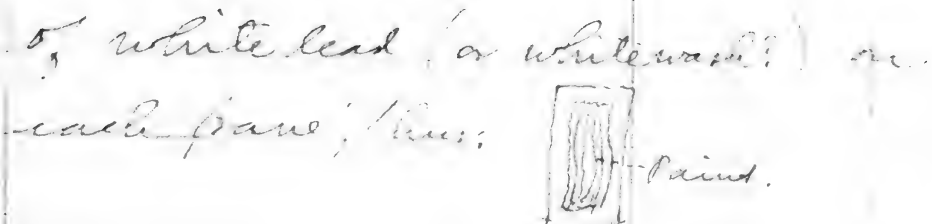 of white lead (or whitewash?) on
each pane, thus:
Paint.